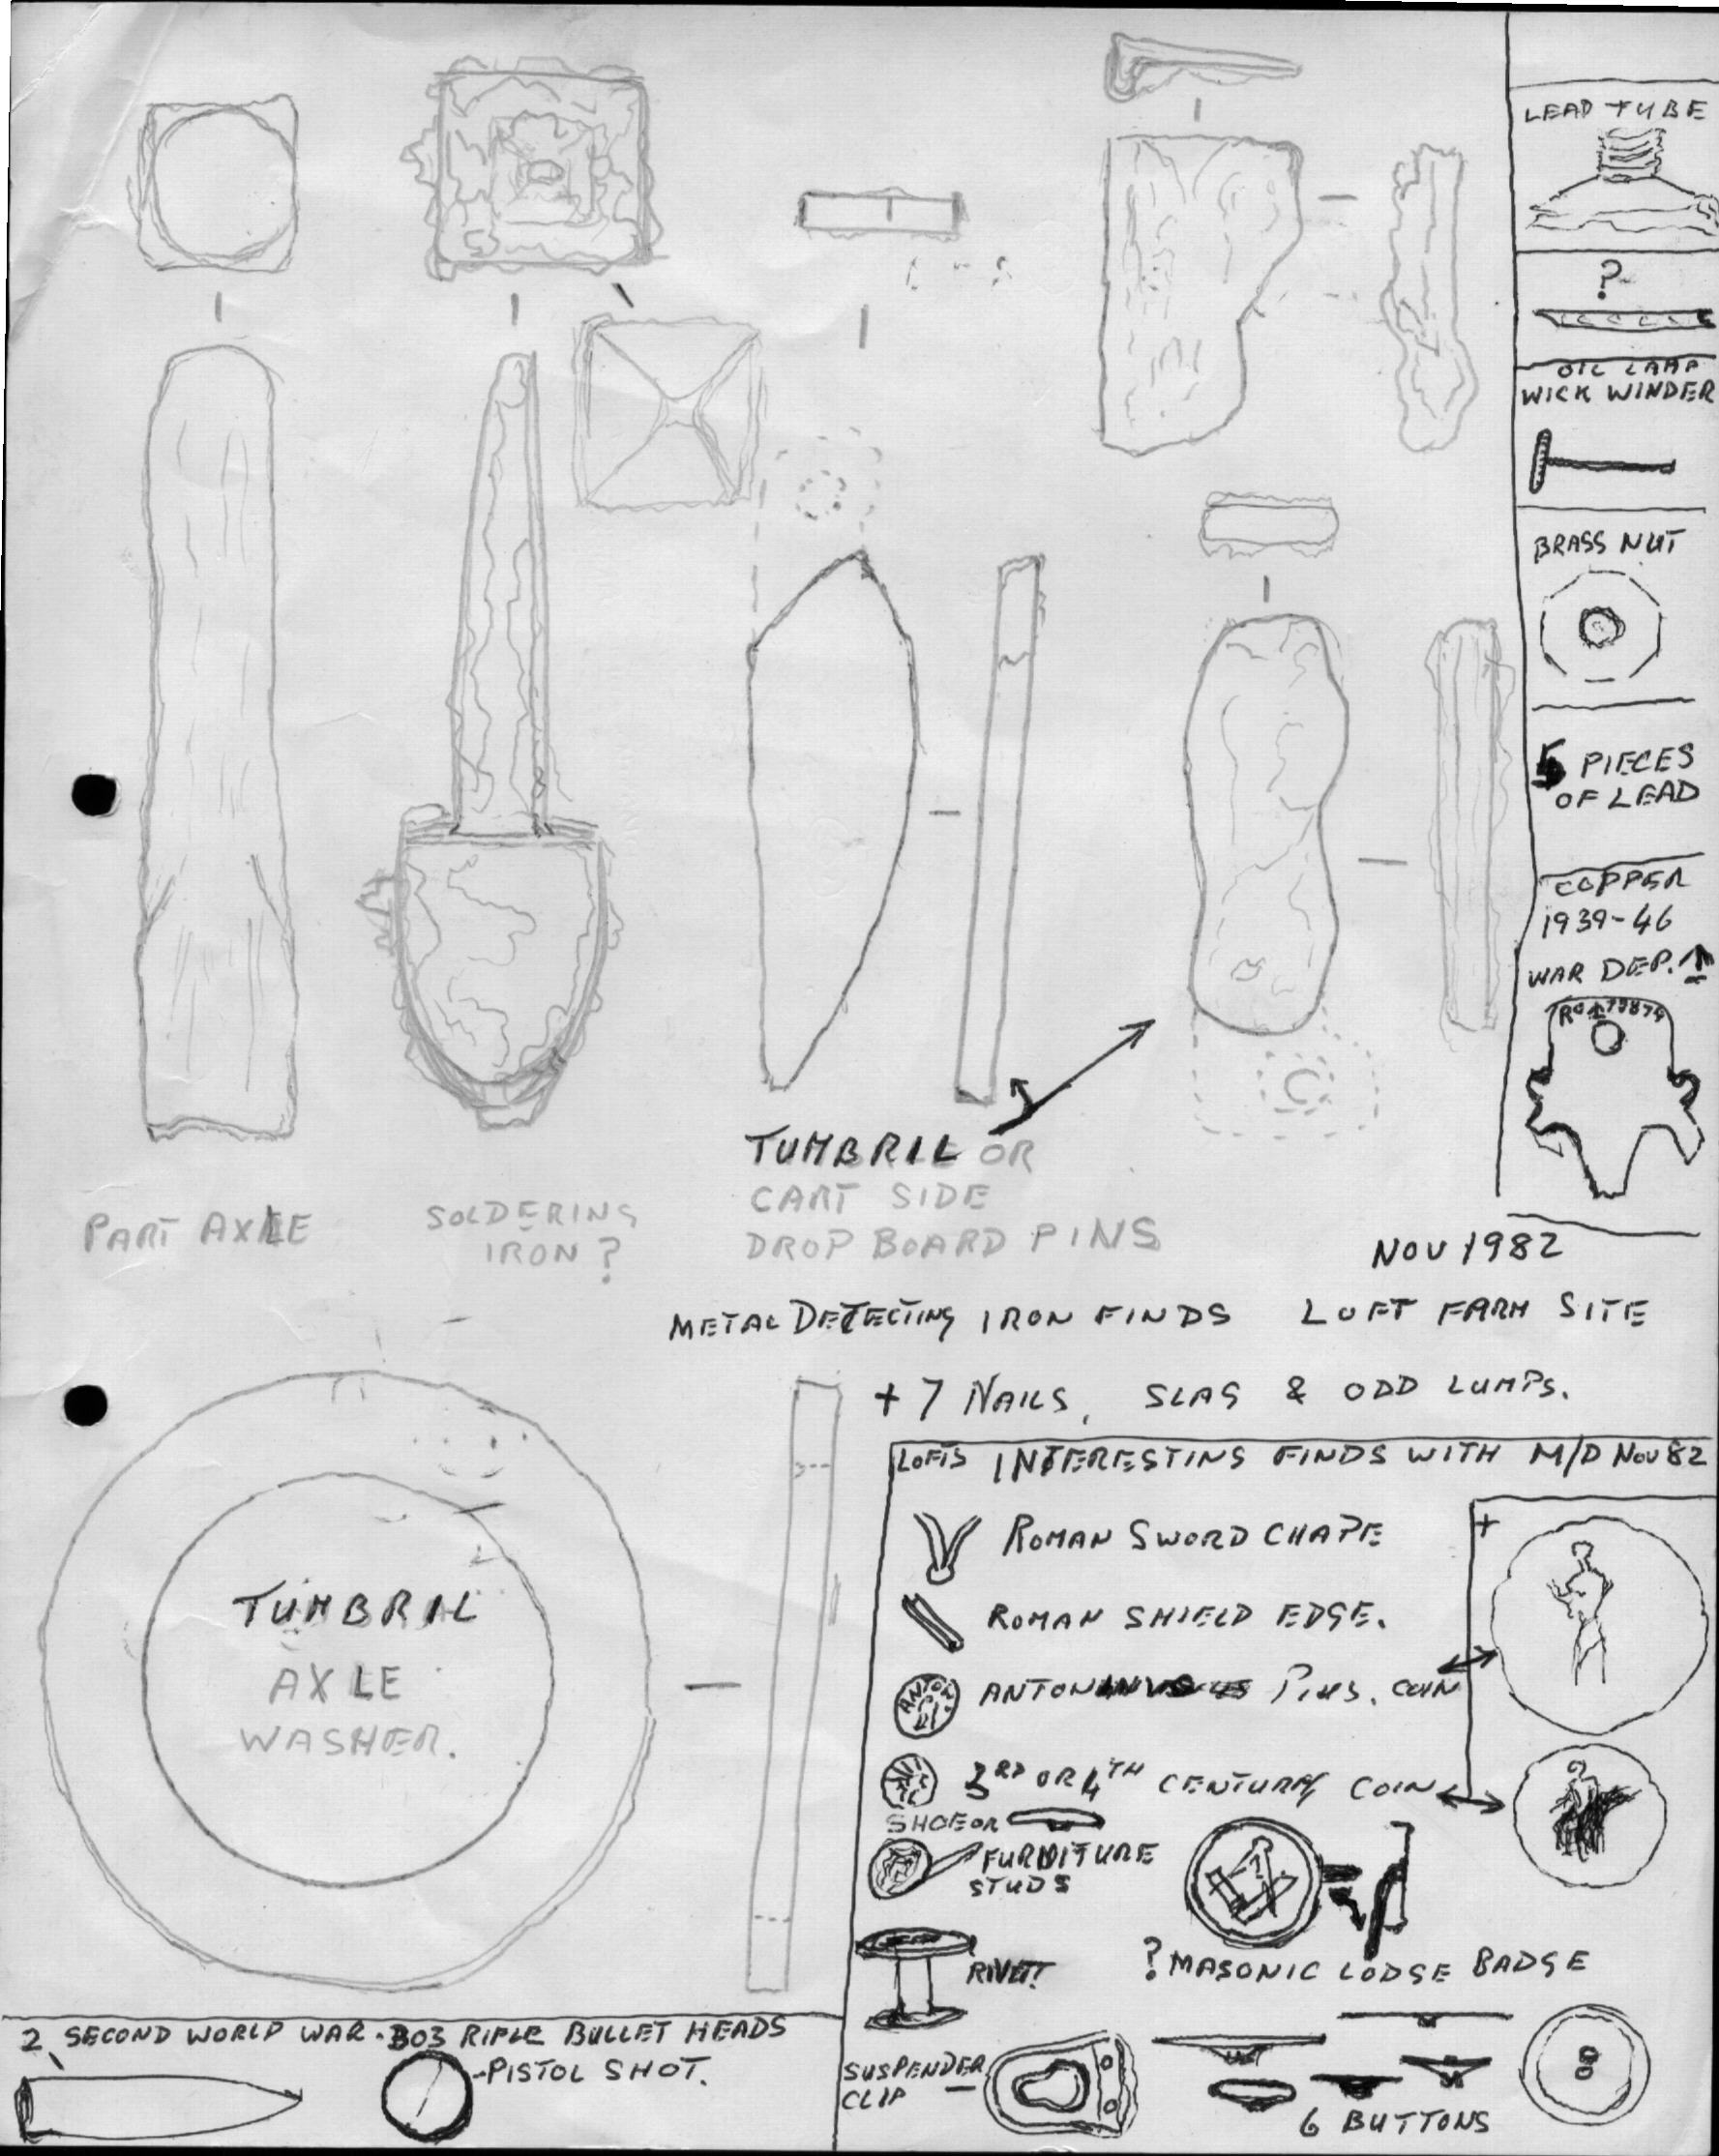 LEAD TUBE
?
OIL LAMP
WICK WINDER
BRASS NUT
5 PIECES
OF LEAD
COPPER
1939-46
WAR DEP. ↑
PART AXLE
SOLDERING
IRON?
TUMBRIL OR
CART SIDE
DROP BOARD PINS
NOV 1982
METAL DETECTING IRON FINDS LOFT FARM SITE
+ 7 NAILS, SLAG & ODD LUMPS.
TUMBRIL
AXLE
WASHER.
LOFTS INTERESTING FINDS WITH M/D NOV 82
+
ROMAN SWORD CHAPE
ROMAN SHIELD EDGE.
ANTON
PIUS. COIN
3RD OR 4TH CENTURY COIN
SHOE OR
FURNITURE
STUDS
RIVET?
? MASONIC LODGE BADGE
SUSPENDER
CLIP
6 BUTTONS
2 SECOND WORLD WAR .303 RIFLE BULLET HEADS
PISTOL SHOT.